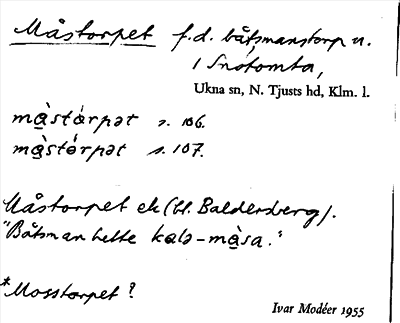 Måstorpet f.d. båtsmanstorp u.
/ Snötomta,
Ukna sn, N. Tjusts hd, Klm. l.
mą̀stórpət s. 106.
mą̀stórpət s. 107.
Måstorpet ek (bl. Baldersberg).
"Båtsman hette kalə-mą̀sa."
*Mosstorpet?
Ivar Modéer 1955